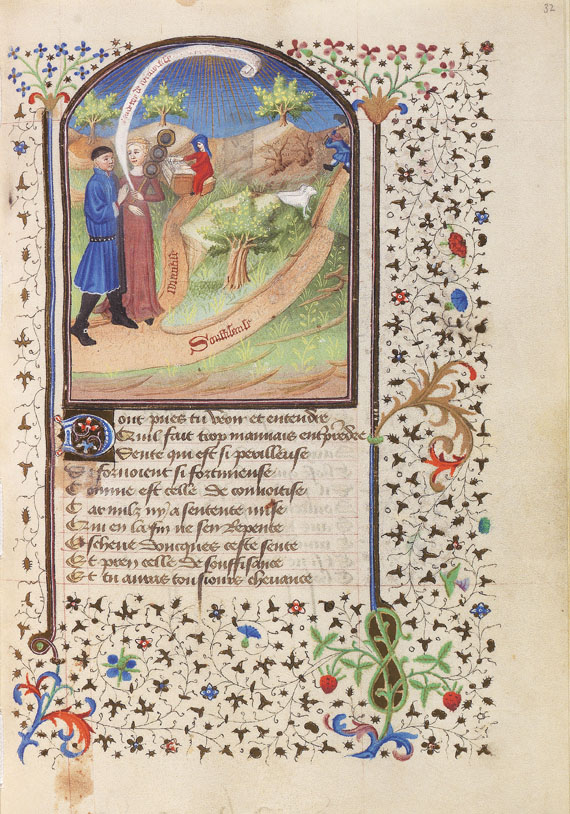 32
Souffisance
Dont pues tu veoir et entendre
Quil fait trop mauuais entprendre
Sente qui est si perilleuse
Si foruoient si fortuneuse
Comme est celle de conuoitise
Car nulz ny a sentente mise
Qui en la fin ne sen Repente
Escheue doncques ceste sente
Et pren celle de souffisance
Et tu auras tousiours cheuance